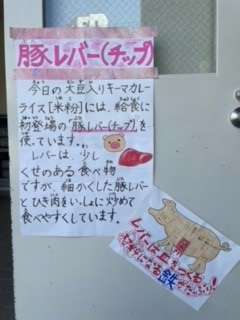 豚レバー(チップ)
今日の大豆入りキーマカレー
ライス[米粉]には、給食に
初登場の「豚レバー(チップ)」を
使っています。
レバーは、少し
くせのある食べ物
ですが、細かくした豚レバー
とひき肉をいっしょに炒めて
食べやすくしています。
レバーは血をつくる!
鉄